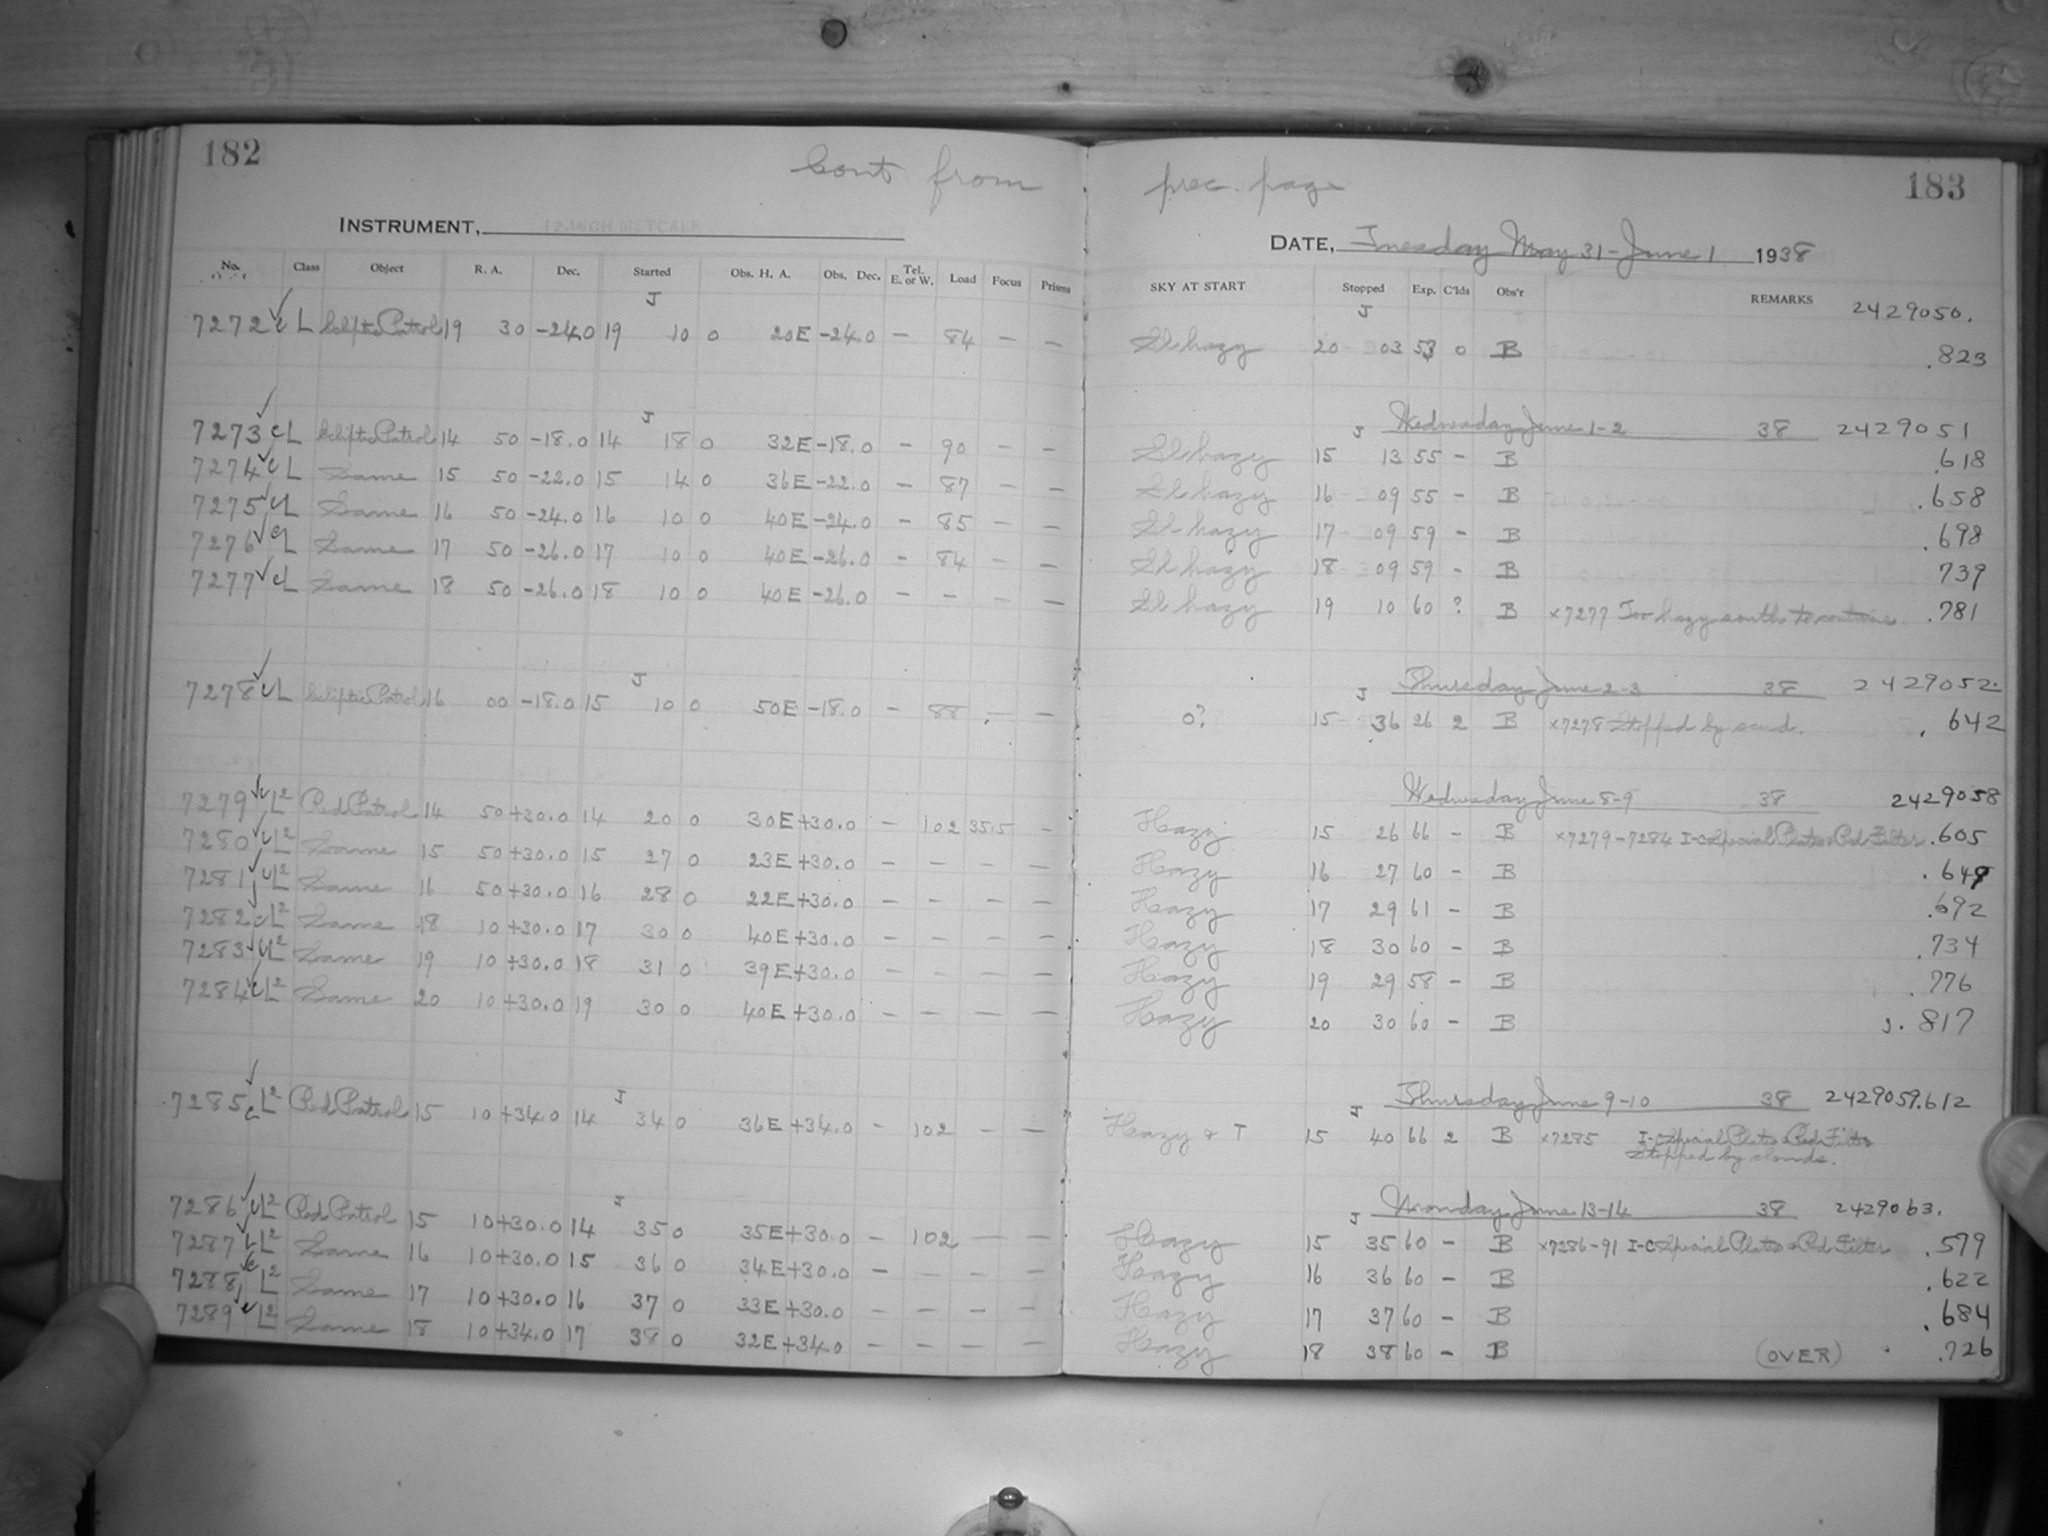 182
Cont. from prec. page
183
INSTRUMENT, 12-INCH METCALF
DATE, Tuesday May 31-June 1 1938
No. Class Object R. A. Dec. Started Obs. H. A. Obs. Dec. Tel. E. or W. Load Focus Prisms SKY AT START Stopped Exp. C'lds Obs'r REMARKS
J J 2429050.
7272 c L Ecliptic Patrol 19 30 -24.0 19 10 0 20E -24.0 - 84 - - Sl hazy 20 03 53 0 B .823
J J Wednesday June 1-2 38 2429051
7273 cL Ecliptic Patrol 14 50 -18.0 14 18 0 32E -18.0 - 90 - - Sl hazy 15 13 55 - B .618
7274 cL Same 15 50 -22.0 15 14 0 36E -22.0 - 87 - - Sl hazy 16 09 55 - B .658
7275 cL Same 16 50 -24.0 16 10 0 40E -24.0 - 85 - - Sl hazy 17 09 59 - B .698
7276 cL Same 17 50 -26.0 17 10 0 40E -26.0 - 84 - - Sl hazy 18 09 59 - B 739
7277 cL Same 18 50 -26.0 18 10 0 40E -26.0 - - - - Sl hazy 19 10 60 ? B x7277 Too hazy south to continue .781
J J Thursday June 2-3 38 2429052.
7278 cL Ecliptic Patrol 16 00 -18.0 15 10 0 50E -18.0 - 88 - - 0? 15 36 26 2 B x7278 Stopped by scud. .642
Wednesday June 8-9 38 2429058
7279 cL² Red Patrol 14 50 +30.0 14 20 0 30E +30.0 - 102 35.5 - Hazy 15 26 66 - B x7279-7284 I-C Special Plate & Red Filter .605
7280 cL² Same 15 50 +30.0 15 27 0 23E +30.0 - - - - Hazy 16 27 60 - B .648
7281 cL² Same 16 50 +30.0 16 28 0 22E +30.0 - - - - Hazy 17 29 61 - B .692
7282 cL² Same 18 10 +30.0 17 30 0 40E +30.0 - - - - Hazy 18 30 60 - B .734
7283 cL² Same 19 10 +30.0 18 31 0 39E +30.0 - - - - Hazy 19 29 58 - B .776
7284 cL² Same 20 10 +30.0 19 30 0 40E +30.0 - - - - Hazy 20 30 60 - B J .817
J J Thursday June 9-10 38 2429059.612
7285 cL² Red Patrol 15 10 +34.0 14 34 0 36E +34.0 - 102 - - Hazy & T 15 40 66 2 B x7285 I-C Special Plate & Red Filter
Stopped by clouds.
J J Monday June 13-14 38 2429063.
7286 cL² Red Patrol 15 10 +30.0 14 35 0 35E +30.0 - 102 - - Hazy 15 35 60 - B x7286-91 I-C Special Plate & Red Filter .579
7287 cL² Same 16 10 +30.0 15 36 0 34E +30.0 - - - - Hazy 16 36 60 - B .622
7288 cL² Same 17 10 +30.0 16 37 0 33E +30.0 - - - - Hazy 17 37 60 - B .684
7289 cL² Same 18 10 +34.0 17 38 0 32E +34.0 - - - - Hazy 18 38 60 - B (OVER) .726